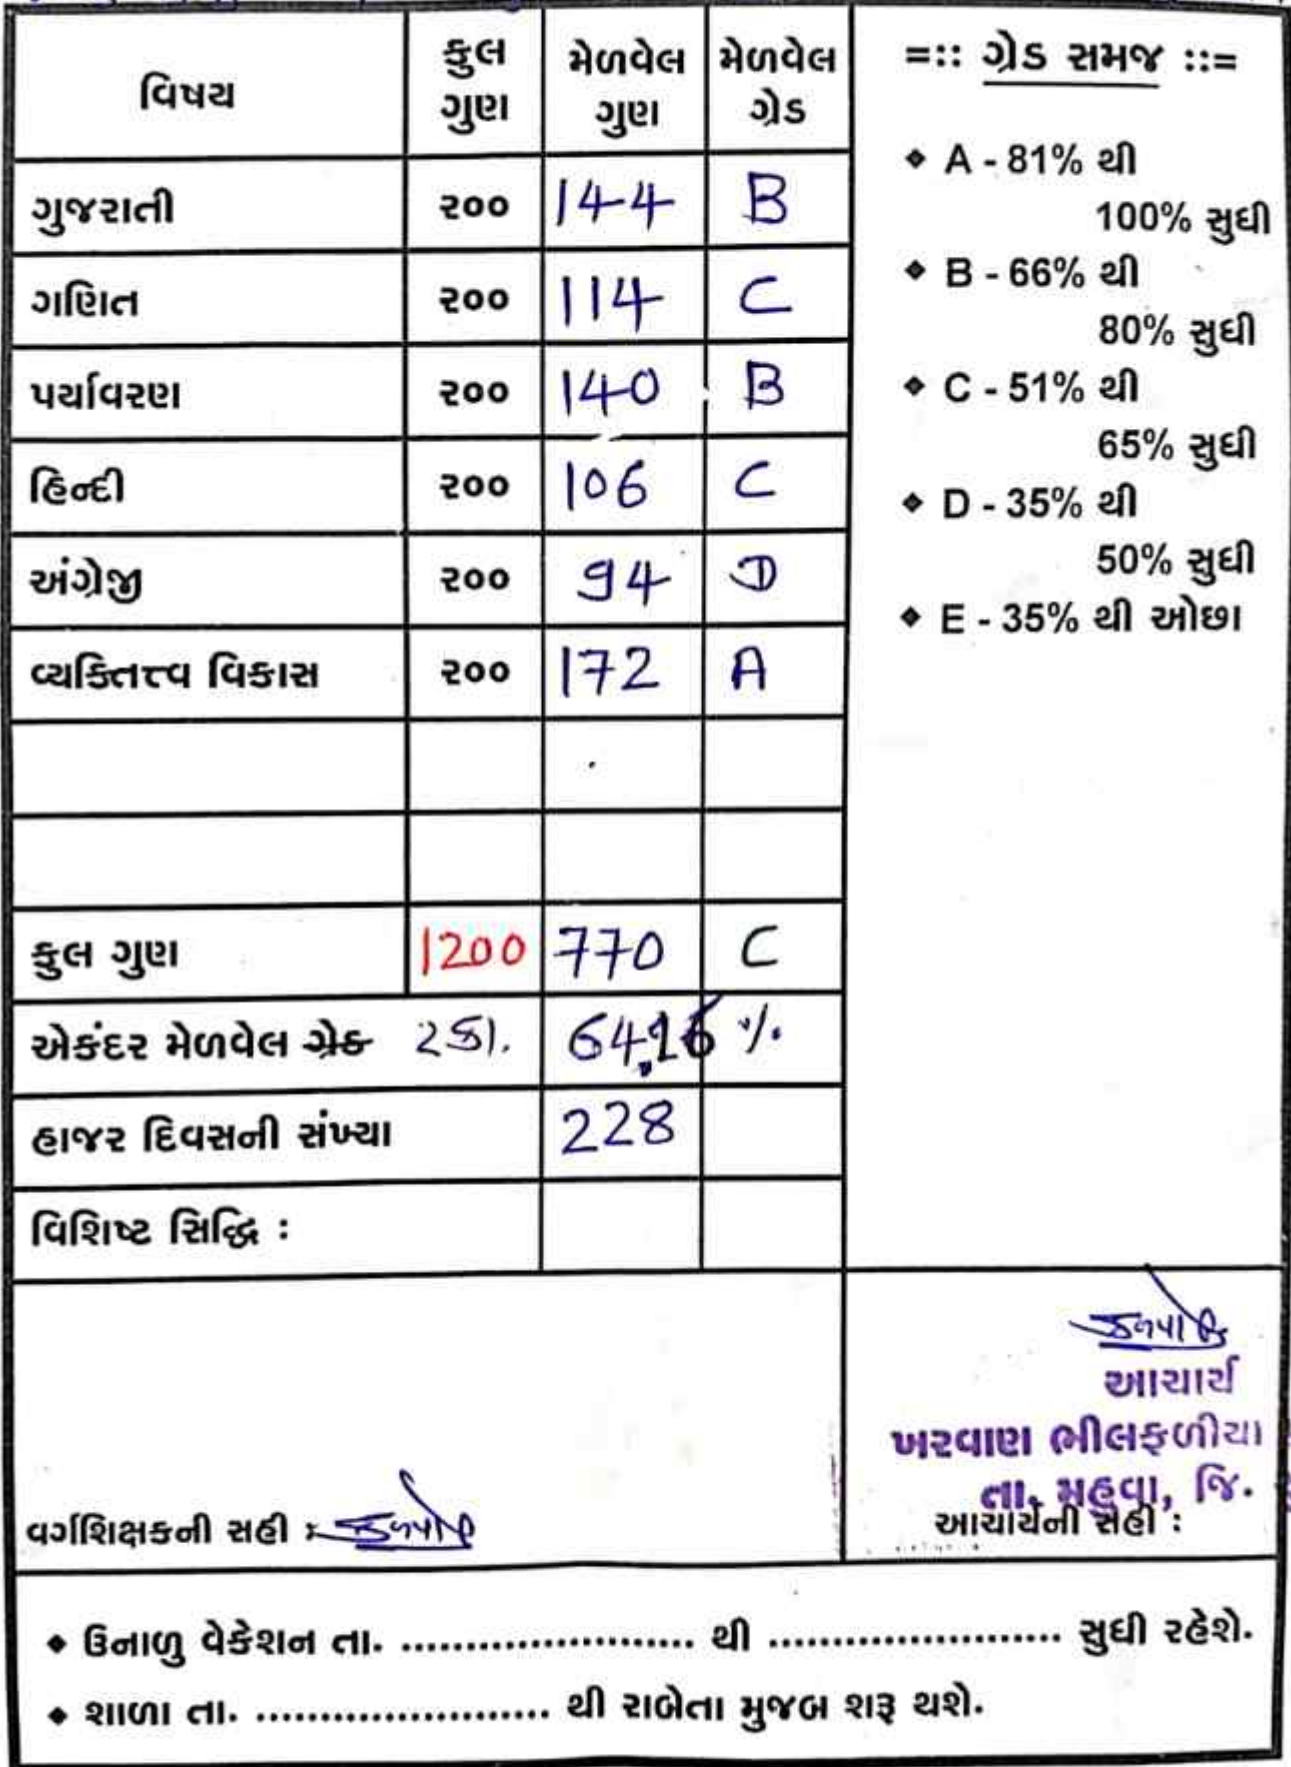 વિષય કુલ ગુણ મેળવેલ ગુણ મેળવેલ ગ્રેડ
ગુજરાતી ૨૦૦ 144 B
ગણિત ૨૦૦ 114 C
પર્યાવરણ ૨૦૦ 140 B
હિન્દી ૨૦૦ 106 C
અંગ્રેજી ૨૦૦ 94 D
વ્યક્તિત્ત્વ વિકાસ ૨૦૦ 172 A
કુલ ગુણ 1200 770 C
એકંદર મેળવેલ ગ્રેડ ટકા. 64.16 %
હાજર દિવસની સંખ્યા 228
વિશિષ્ટ સિદ્ધિ :
=:: ગ્રેડ સમજ ::=
❖ A - 81% થી
100% સુધી
❖ B - 66% થી
80% સુધી
❖ C - 51% થી
65% સુધી
❖ D - 35% થી
50% સુધી
❖ E - 35% થી ઓછા
વર્ગશિક્ષકની સહી :
આચાર્ય
ખરવાણ ભીલફળીયા
તા. મહુવા, જિ.
આચાર્યની સહી :
❖ ઉનાળુ વેકેશન તા. ....................... થી ....................... સુધી રહેશે.
❖ શાળા તા. ....................... થી રાબેતા મુજબ શરૂ થશે.